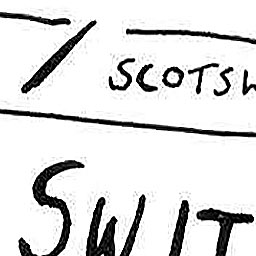 / SCOTS
SWIT